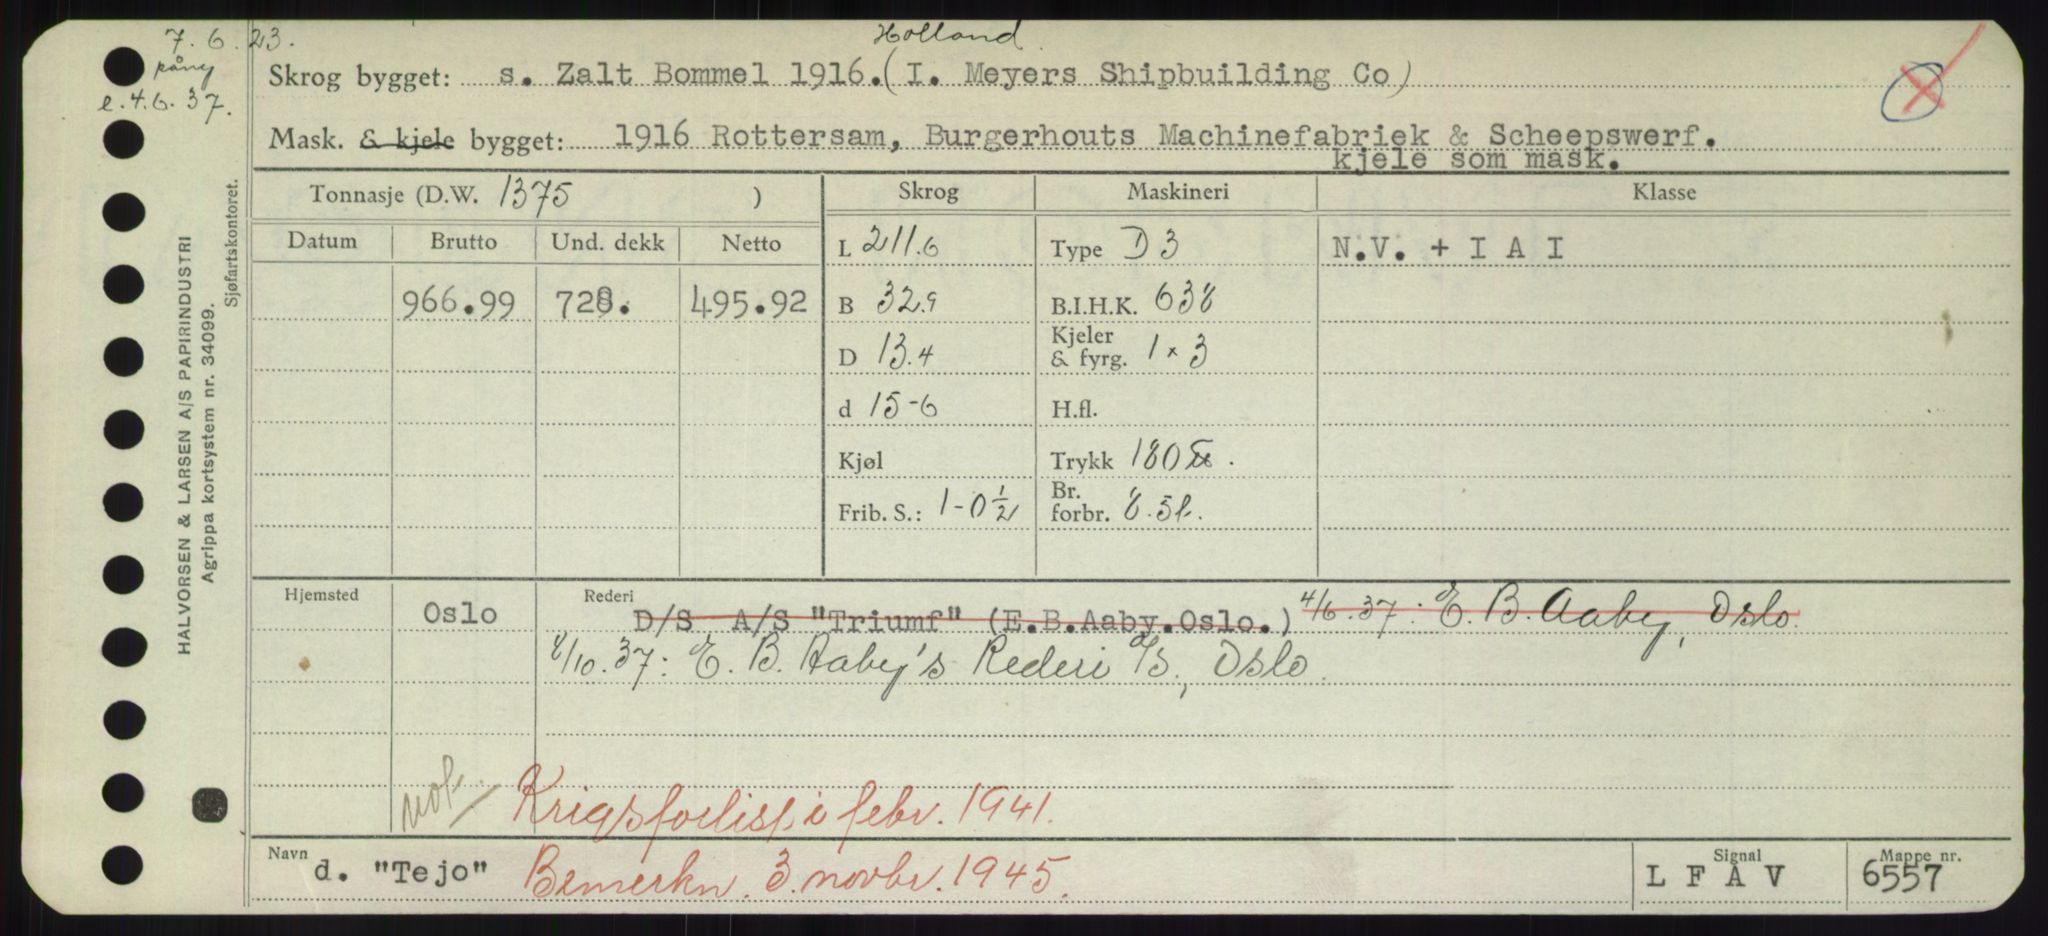 7.6.23.
påny
e.4.6.37.
Holland
Skrog bygget: s. Zalt Bommel 1916.(I. Meyers Shipbuilding Co)
Mask. & kjele bygget: 1916 Rottersam, Burgerhouts Machinefabriek & Scheepswerf.
kjele som mask.
Tonnasje (D.W. 1375 ) Skrog Maskineri Klasse
Datum Brutto Und. dekk Netto L 211.6 Type D 3 N.V. + I A I
966.99 728. 495.92 B 32.9 B.I.H.K. 638
D 13.4 Kjeler & fyrg. 1 x 3
d 15-6 H.fl.
Kjøl Trykk 180
Frib. S.: 1-0 1/2 Br. forbr. 8.5t.
Hjemsted Oslo Rederi D/S A/S "Triumf" (E.B.Aaby.Oslo.) 4/6.37: E. B. Aaby, Oslo.
8/10.37: E. B. Aaby's Rederi A/S, Oslo.
Krigsforlist i febr. 1941.
Navn d. "Tejo" Bemerkn. 3. novbr. 1945. Signal L F A V Mappe nr. 6557
HALVORSEN & LARSEN A/S PAPIRINDUSTRI
Agrippa kortsystem nr. 34099.
Sjøfartskontoret.